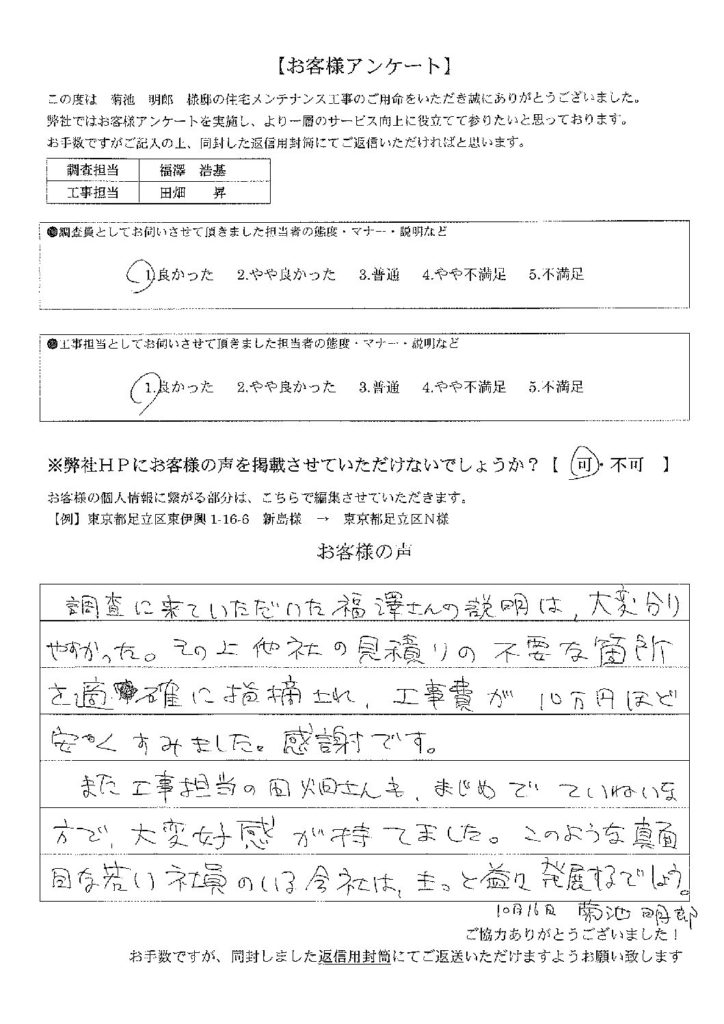 【お客様アンケート】
この度は　菊池　明郎　様邸の住宅メンテナンス工事のご用命をいただき誠にありがとうございました。
弊社ではお客様アンケートを実施し、より一層のサービス向上に役立てて参りたいと思っております。
お手数ですがご記入の上、同封した返信用封筒にてご返信いただければと思います。
調査担当　福澤　浩基
工事担当　田畑　昇
●調査員としてお伺いさせて頂きました担当者の態度・マナー・説明など
1.良かった　2.やや良かった　3.普通　4.やや不満足　5.不満足
●工事担当としてお伺いさせて頂きました担当者の態度・マナー・説明など
1.良かった　2.やや良かった　3.普通　4.やや不満足　5.不満足
※弊社ＨＰにお客様の声を掲載させていただけないでしょうか？【　可・不可　】
お客様の個人情報に繋がる部分は、こちらで編集させていただきます。
【例】東京都足立区東伊興1-16-6　新島様　→　東京都足立区Ｎ様
お客様の声
調査に来ていただいた福澤さんの説明は、大変分り
やすかった。その上他社の見積りの不要な箇所
を適確に指摘され、工事費が10万円ほど
安くすみました。感謝です。
また工事担当の田畑さんも、まじめでていねいな
方で、大変好感が持てました。このような真面
目な若い社員のいる会社は、きっと益々発展するでしょう。
10月16日　菊池明郎
ご協力ありがとうございました！
お手数ですが、同封しました返信用封筒にてご返送いただけますようお願い致します